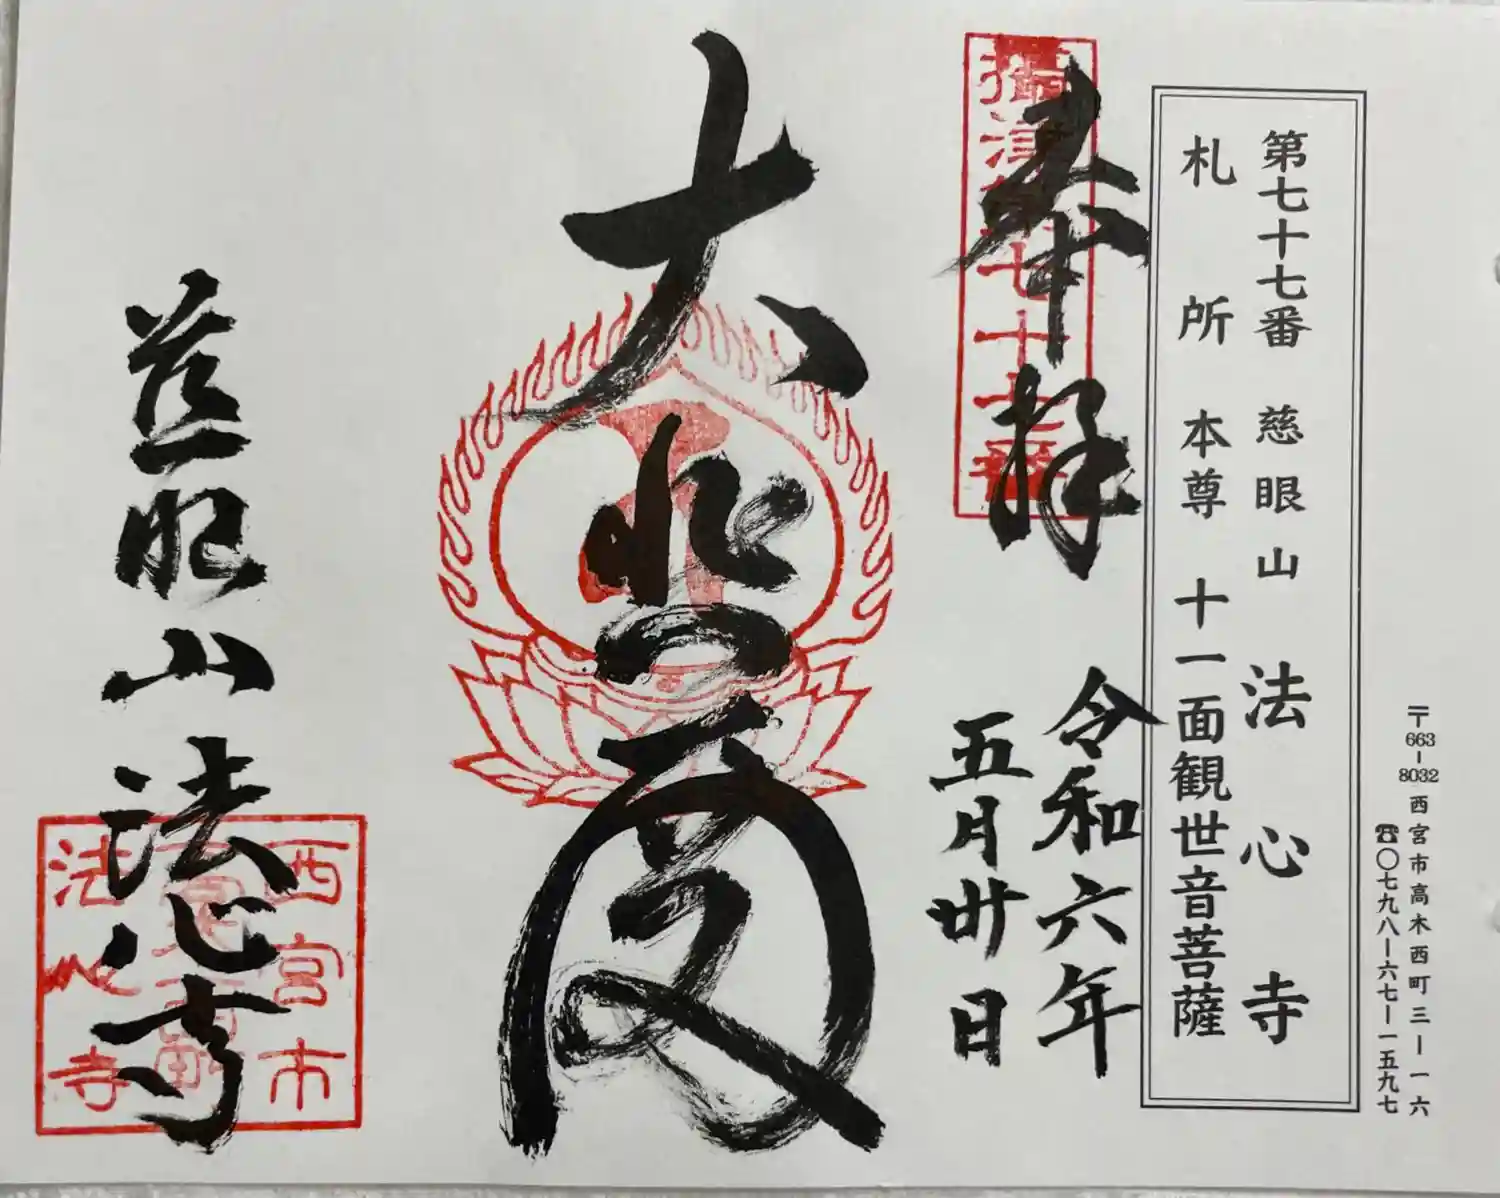 〒663-8032 西宮市高木西町三ー一六
☎〇七九八ー六七ー一五九七
第七十七番 慈眼山 法心寺
札所本尊 十一面観世音菩薩
奉拝
令和六年
五月卅日
大悲殿
慈眼山法心寺
西宮市
法心寺